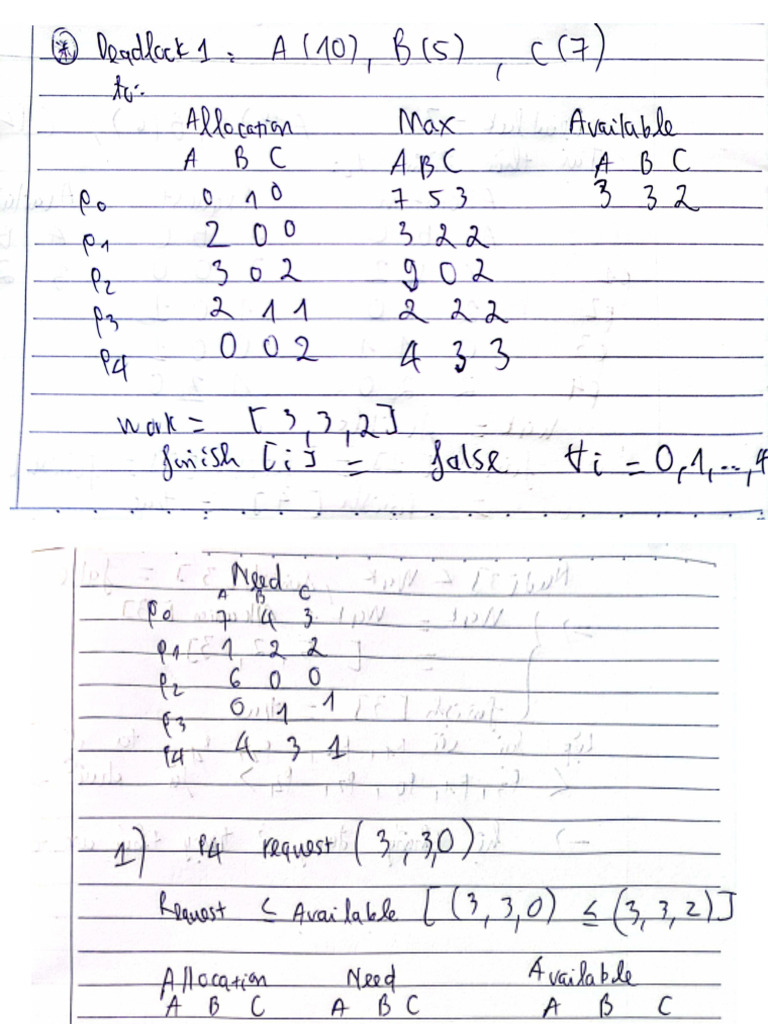 * Deadlock 1: A(10), B(5), C(7)
to:
Allocation Max Available
A B C A B C A B C
P0 0 1 0 7 5 3 3 3 2
P1 2 0 0 3 2 2
P2 3 0 2 9 0 2
P3 2 1 1 2 2 2
P4 0 0 2 4 3 3
work = [3, 3, 2]
finish [i] = false ∀i = 0, 1, .., 4
Need
A B C
P0 7 4 3
P1 1 2 2
P2 6 0 0
P3 0 1 1
P4 4 3 1
1) P4 request (3, 3, 0)
Request ≤ Available [(3, 3, 0) ≤ (3, 3, 2)]
Allocation Need Available
A B C A B C A B C